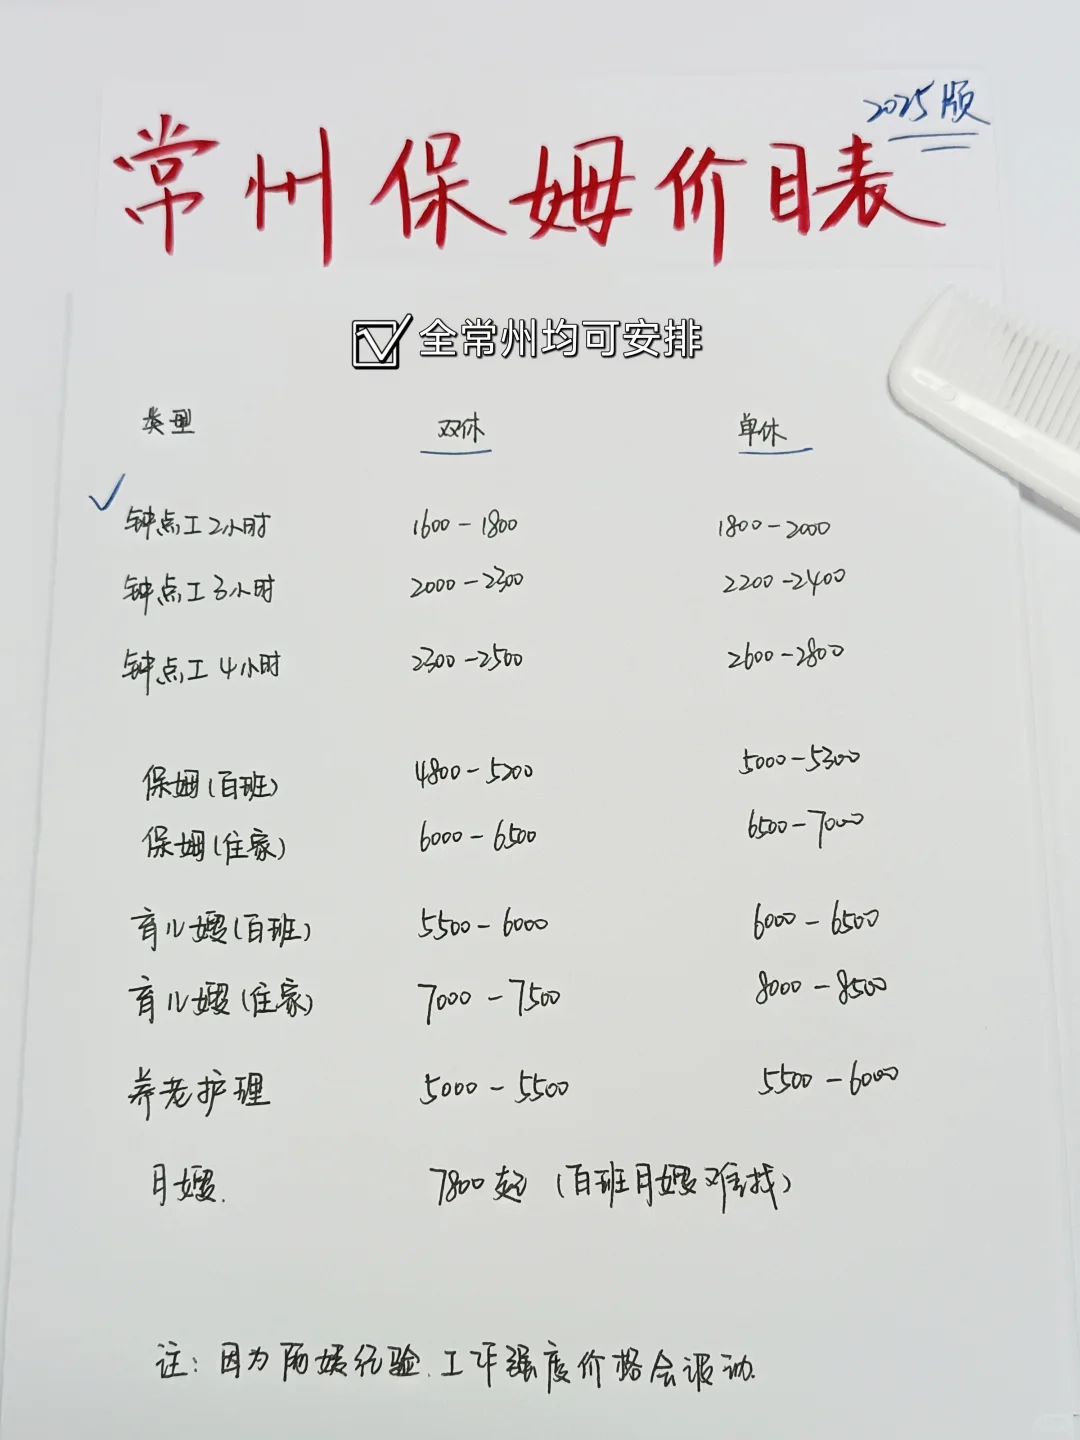 2025版
常州保姆价目表
全常州均可安排
类型 双休 单休
钟点工2小时 1600-1800 1800-2000
钟点工3小时 2000-2300 2200-2400
钟点工4小时 2300-2500 2600-2800
保姆(百班) 4800-5200 5000-5300
保姆(住家) 6000-6500 6500-7000
育儿嫂(百班) 5500-6000 6000-6500
育儿嫂(住家) 7000-7500 8000-8500
养老护理 5000-5500 5500-6000
月嫂. 7800起 (百班月嫂难找)
注:因为阿姨经验.工作强度价格会波动.